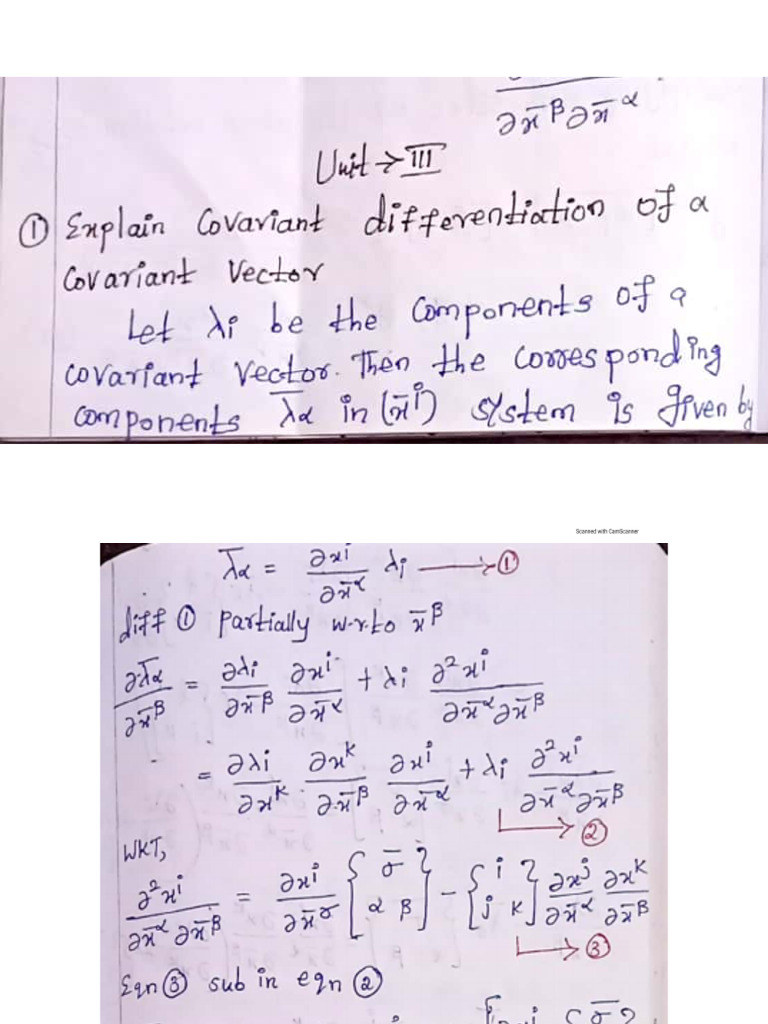 ∂x̄^β ∂x̄^α
Unit → III
① Explain Covariant differentiation of a
Covariant Vector
Let λi be the components of a
covariant vector. Then the corresponding
components λ̄α in (x̄^i) system is given by
Scanned with CamScanner
λ̄α = ∂x^i/∂x̄^α λi → ①
diff ① partially w.r.to x̄^β
∂λ̄α/∂x̄^β = ∂λi/∂x̄^β ∂x^i/∂x̄^α + λi ∂²x^i/∂x̄^α∂x̄^β
= ∂λi/∂x^k ∂x^k/∂x̄^β ∂x^i/∂x̄^α + λi ∂²x^i/∂x̄^α∂x̄^β
→ ②
WKT,
∂²x^i/∂x̄^α ∂x̄^β = ∂x^i/∂x̄^σ {σ̄ α β} - {i j k} ∂x^j/∂x̄^α ∂x^k/∂x̄^β
→ ③
Eqn ③ sub in eqn ②